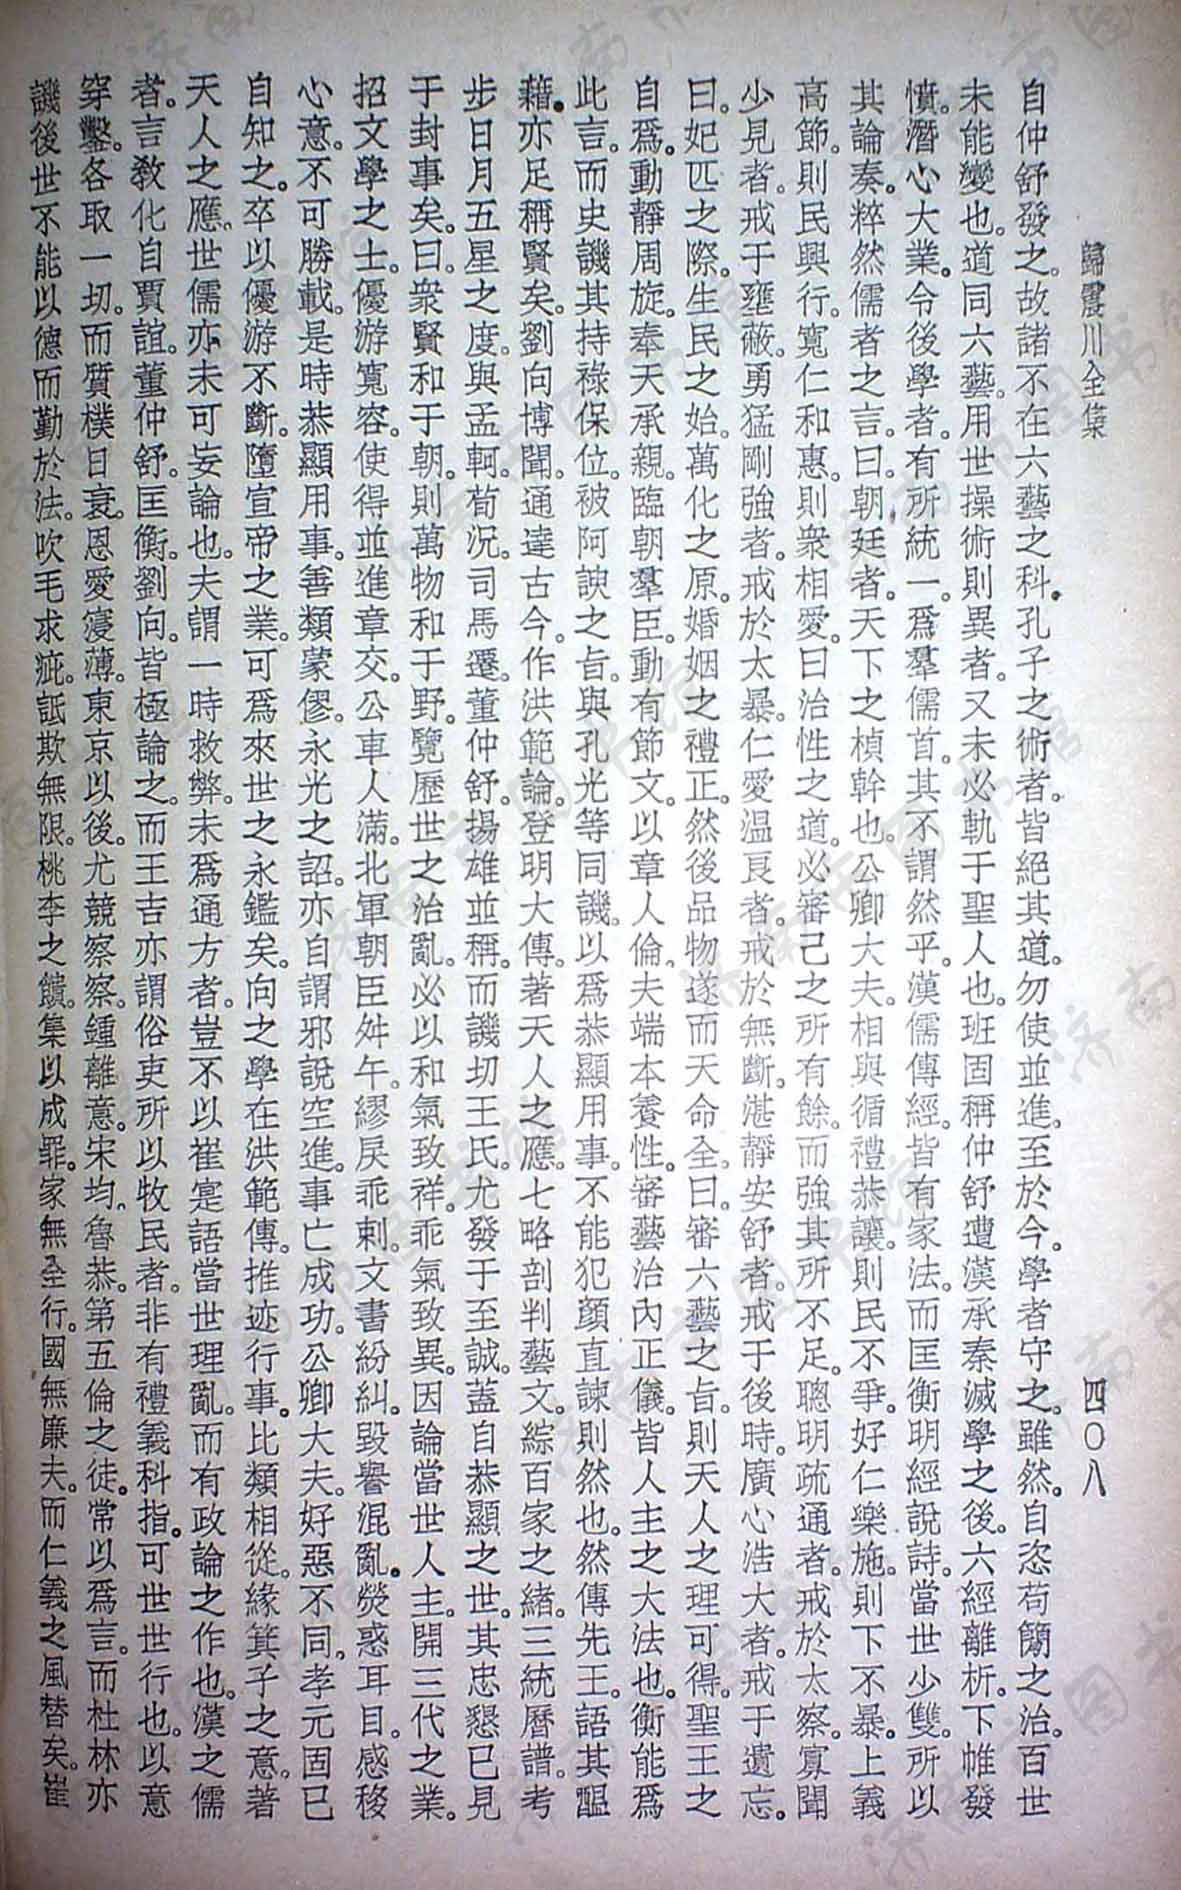 歸震川全集
四〇八
自仲舒發之。故諸不在六藝之科。孔子之術者。皆絕其道。勿使並進。至於今。學者守之。雖然。自恣苟簡之治。百世
未能變也。道同六藝。用世操術則異者。又未必軌于聖人也。班固稱仲舒遭漢承秦滅學之後。六經離析。下帷發
憤。潛心大業。令後學者。有所統一。爲羣儒首。其不謂然乎。漢儒傳經。皆有家法。而匡衡明經說詩。當世少雙。所以
其論奏。粹然儒者之言。曰。朝廷者。天下之楨幹也。公卿大夫。相與循禮恭讓。則民不爭。好仁樂施。則下不暴。上義
高節。則民興行。寬仁和惠。則衆相愛。曰治性之道。必審己之所有餘。而強其所不足。聰明疏通者。戒於太察。寡聞
少見者。戒于壅蔽。勇猛剛強者。戒於太暴。仁愛温良者。戒於無斷。湛靜安舒者。戒于後時。廣心浩大者。戒于遺忘。
曰。妃匹之際。生民之始。萬化之原。婚姻之禮正。然後品物遂而天命全。曰。審六藝之旨。則天人之理可得。聖王之
自爲。動靜周旋。奉天承親。臨朝羣臣。動有節文。以章人倫。夫端本養性。審藝治內正儀。皆人主之大法也。衡能爲
此言。而史譏其持祿保位。被阿諛之旨。與孔光等同譏。以爲恭顯用事。不能犯顏直諫則然也。然傳先王語。其醞
藉。亦足稱賢矣。劉向博聞。通達古今。作洪範論。登明大傳。著天人之應。七略剖判藝文。綜百家之緒。三統曆譜。考
步日月五星之度。與孟軻。荀況。司馬遷。董仲舒。揚雄並稱。而譏切王氏。尤發于至誠。蓋自恭顯之世。其忠懇已見
于封事矣。曰。衆賢和于朝。則萬物和于野。覽歷世之治亂。必以和氣致祥。乖氣致異。因論當世人主。開三代之業。
招文學之士。優游寬容。使得並進章交。公車人滿。北軍朝臣舛午。繆戾乖剌。文書紛糾。毀譽混亂。熒惑耳目。感移
心意。不可勝載。是時恭顯用事。善類蒙僇。永光之詔。亦自謂邪說空進。事亡成功。公卿大夫。好惡不同。孝元固已
自知之。卒以優游不斷。墮宣帝之業。可爲來世之永鑑矣。向之學在洪範傳。推迹行事。比類相從。緣箕子之意。著
天人之應。世儒亦未可妄論也。夫謂一時救弊。未爲通方者。豈不以崔寔語當世理亂。而有政論之作也。漢之儒
者。言敎化自賈誼。董仲舒。匡衡。劉向。皆極論之。而王吉亦謂俗吏所以牧民者。非有禮義科指。可世世行也。以意
穿鑿。各取一切。而質樸日衰。恩愛寖薄。東京以後。尤競察察。鍾離意。宋均。魯恭。第五倫之徒。常以爲言。而杜林亦
譏後世不能以德而勤於法。吹毛求疵。詆欺無限。桃李之饋。集以成罪。家無全行。國無廉夫。而仁義之風替矣。崔